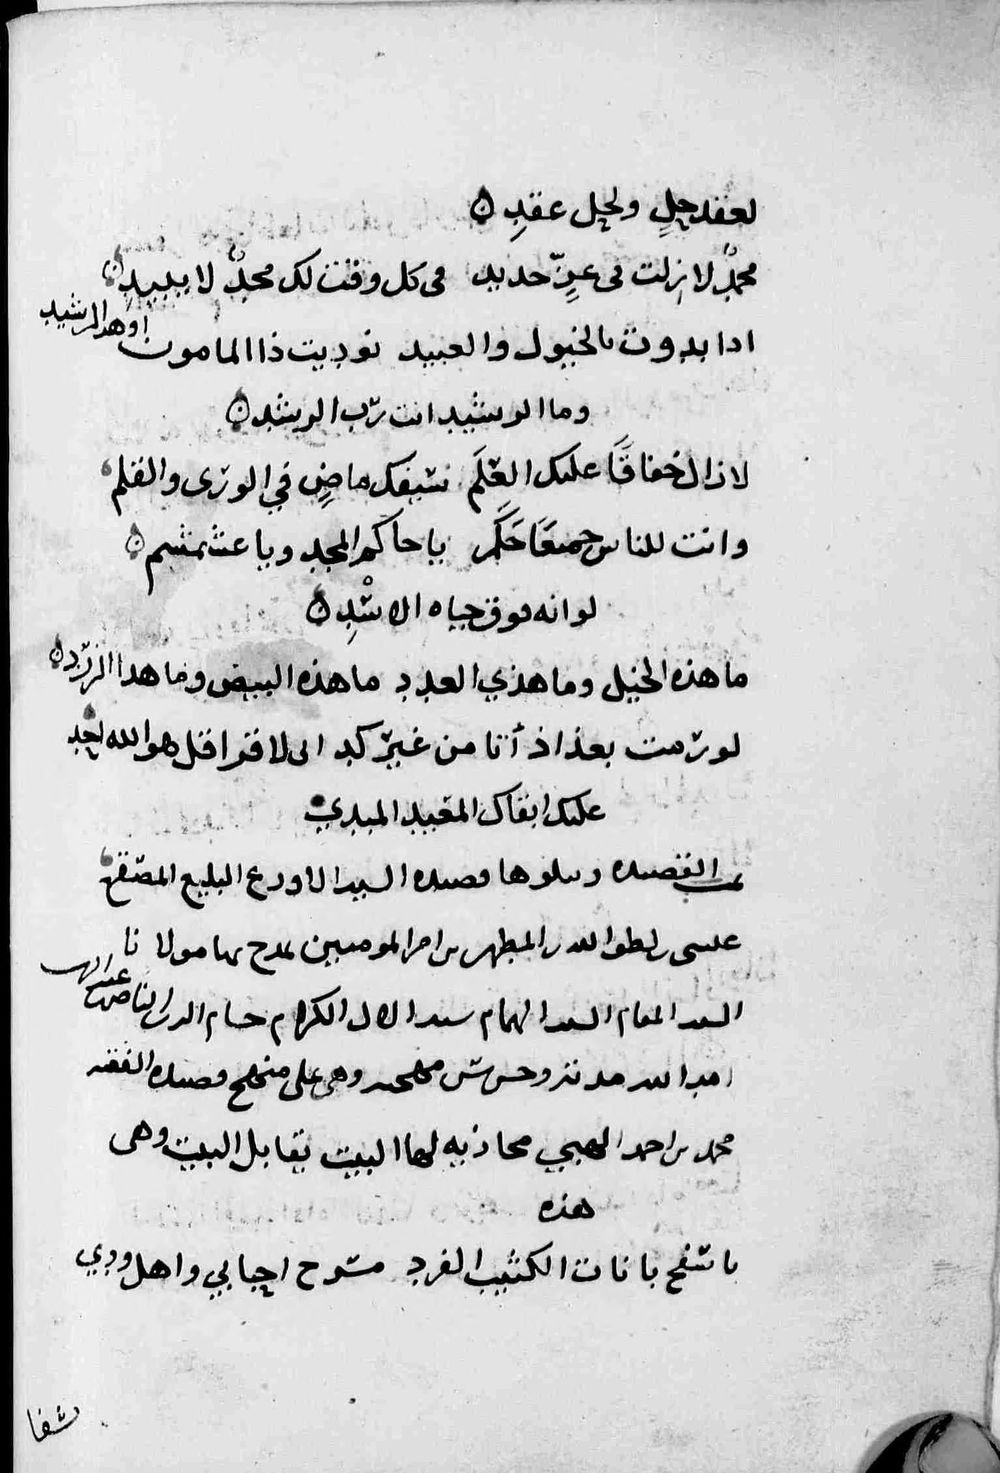 لعقد حل ولحل عقد
محمد لا زلت في عز حديد في كل وقت لك مجد لا يبيد
اذا بدوت بالخيول والعبيد نوديت ذا المامون او هذا الرشيد
وما الرشيد انت رب الرشد
لا زال خفاقا عليك العلم سيفك ماض في الورى والقلم
وانت للناس جميعا حكم يا حاكم المجد ويا عشمشم
لو انه فوق جباه الاسد
ما هذه الخيل وما هذي العدد ما هذه البيض وما هذا الزرد
لو رمت بغداذ أتا من غير كد الى لاقرا قل هو الله احد
عليك ابقاك المعيد المبدي
تمت القصيده ويتلوها قصيده السيد الاورع البليغ المصقع
عيسى بن لطف الله بن المطهر بن امير المومنين يمدح بها مولانا
السيد المقام السيد الهمام سيد الال الكرام حسام الدين الناصر عبد الرب
وهي على منهج قصيده الفقيه
محمد بن احمد محاذيه لها البيت يقابل البيت وهي
هذه
يا سفح بانات الكثيب الفرد مسرح احبابي واهل ودي
شفا